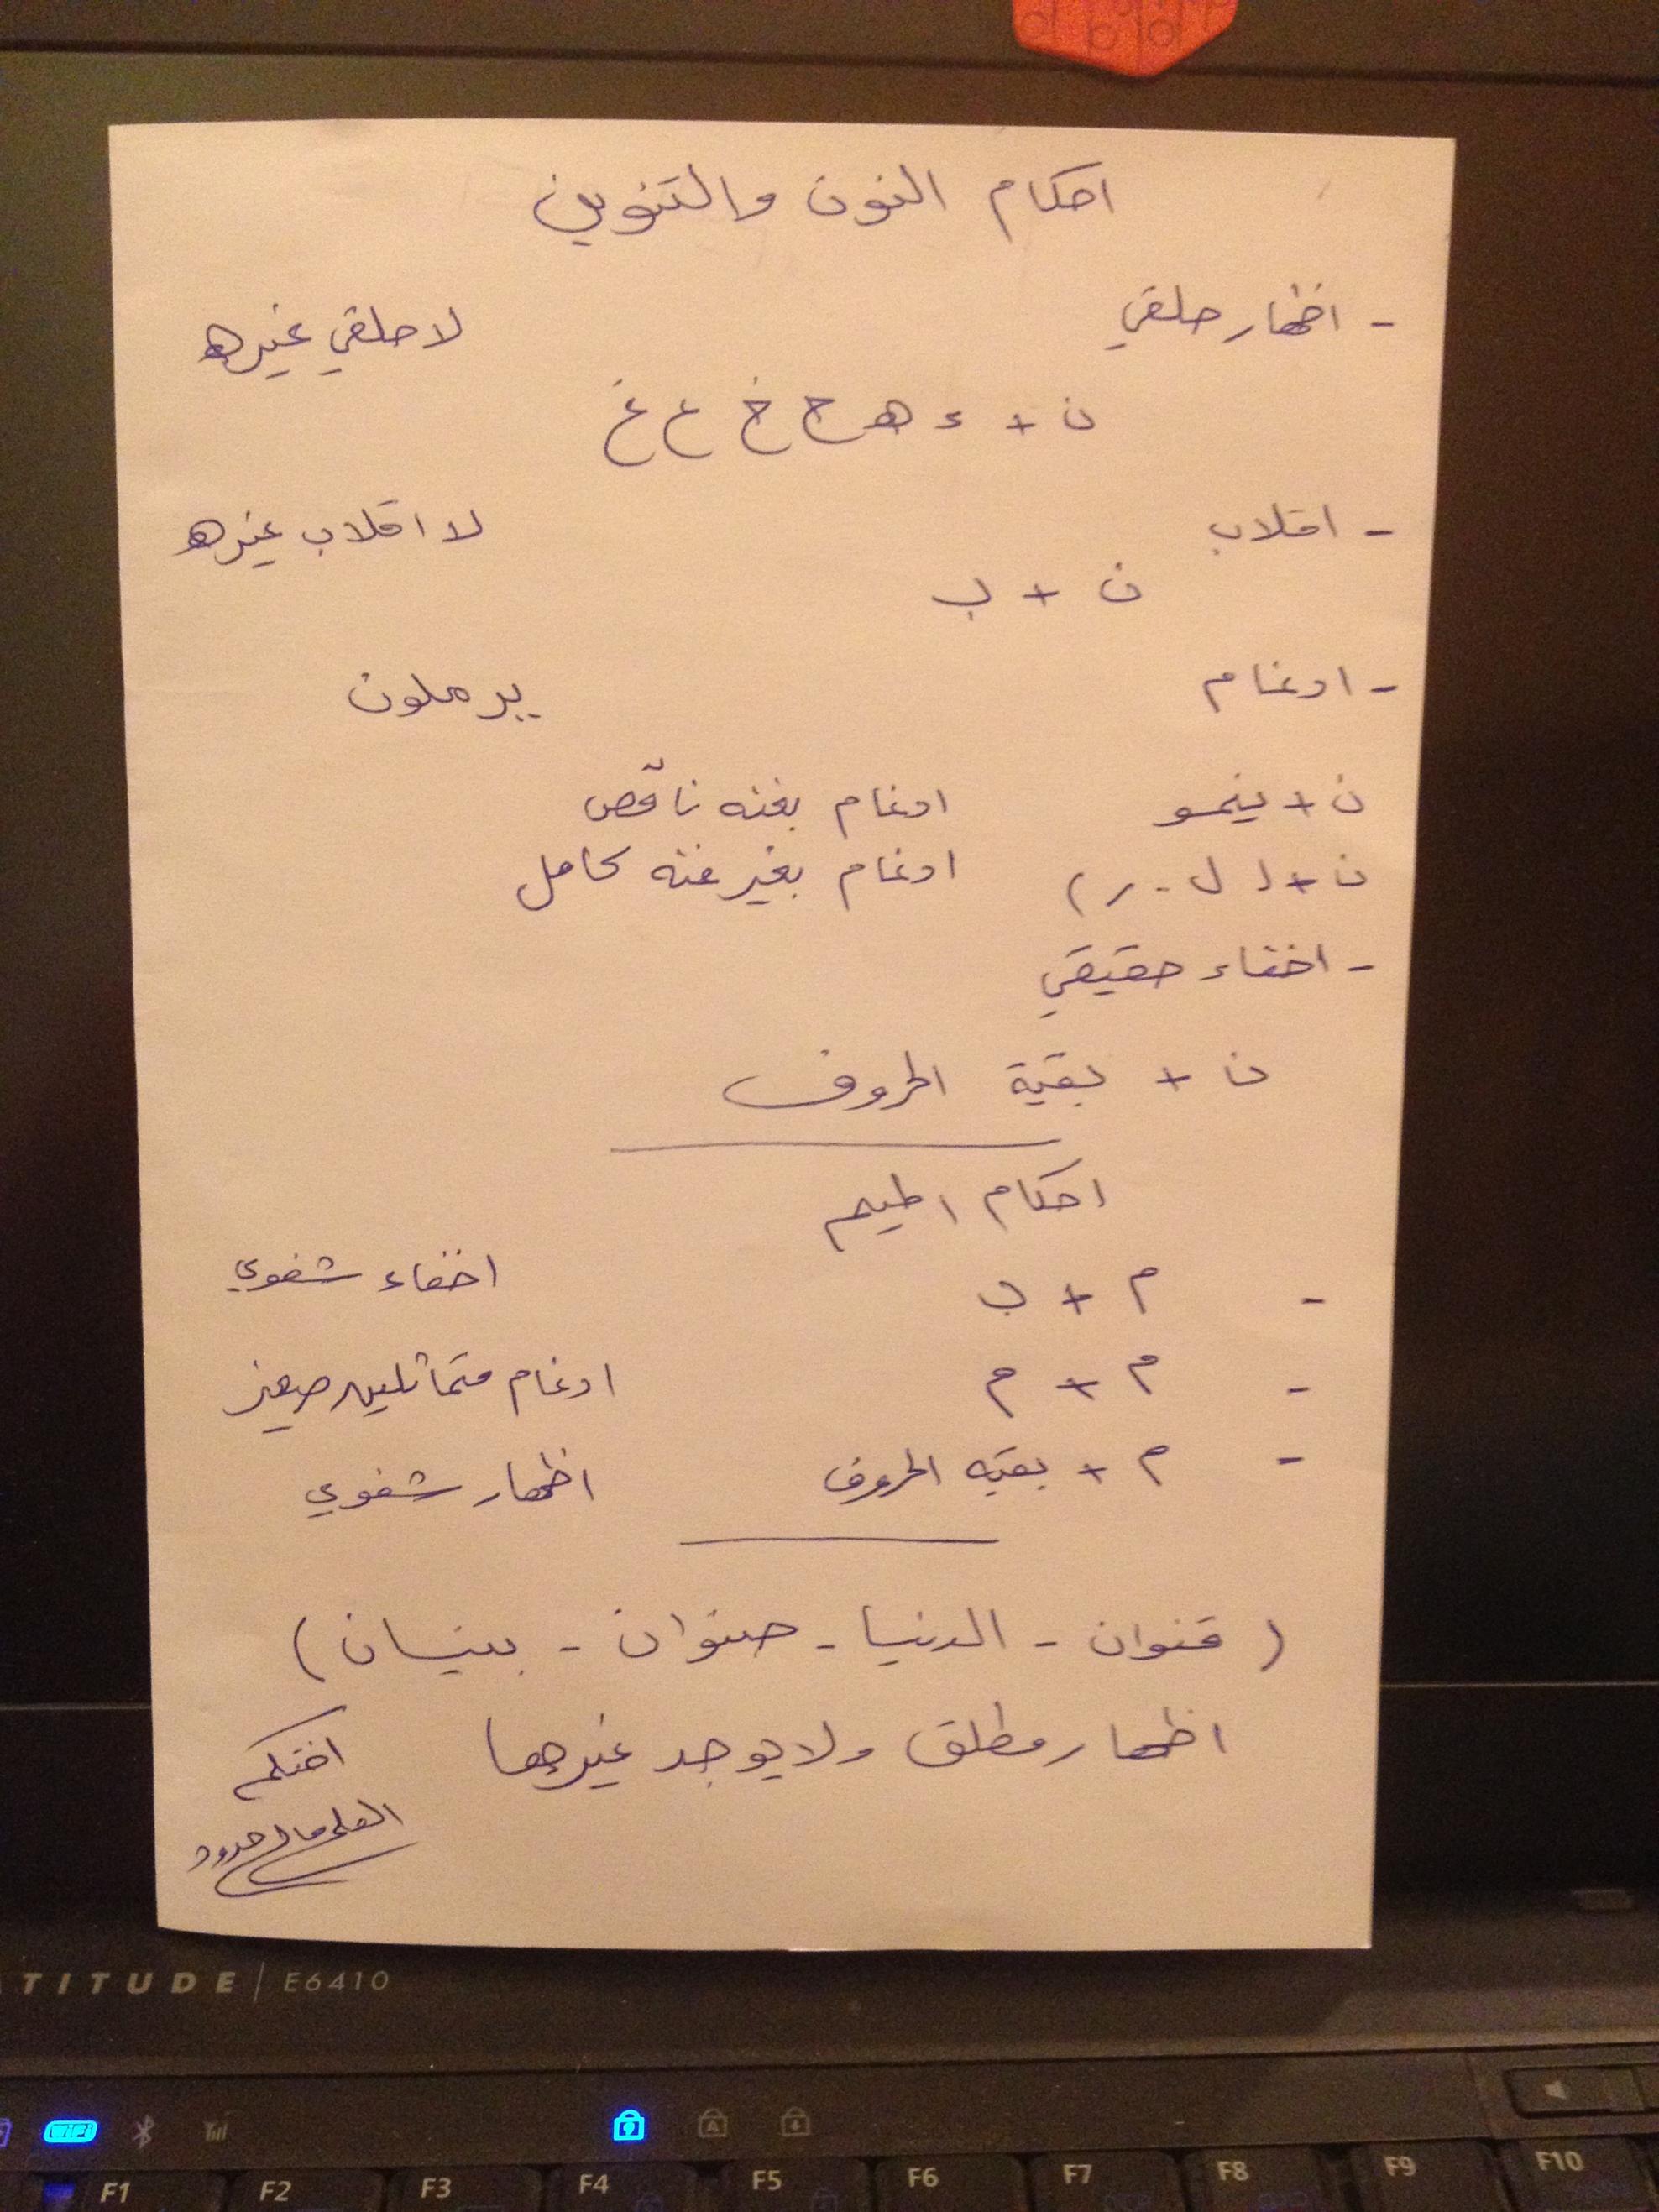 احكام النون والتنوين
- اظهار حلقي لا حلقي غيره
ن + ء ه ح خ ع غ
- اقلاب لا اقلاب غيره
ن + ب
- ادغام يرملون
ن + ينمو ادغام بغنه ناقص
ن + ( ل - ر ) ادغام بغير غنه كامل
- اخفاء حقيقي
ن + بقية الحروف
احكام الميم
- م + ب اخفاء شفوي
- م + م ادغام متماثلين صغير
- م + بقيه الحروف اظهار شفوي
( قنوان - الدنيا - صنوان - بنيان )
اظهار مطلق ولا يوجد غيرها
اختكم
العلم مال حدود
TITUDE | E6410
WiFi
F1 F2 F3 F4 F5 F6 F7 F8 F9 F10